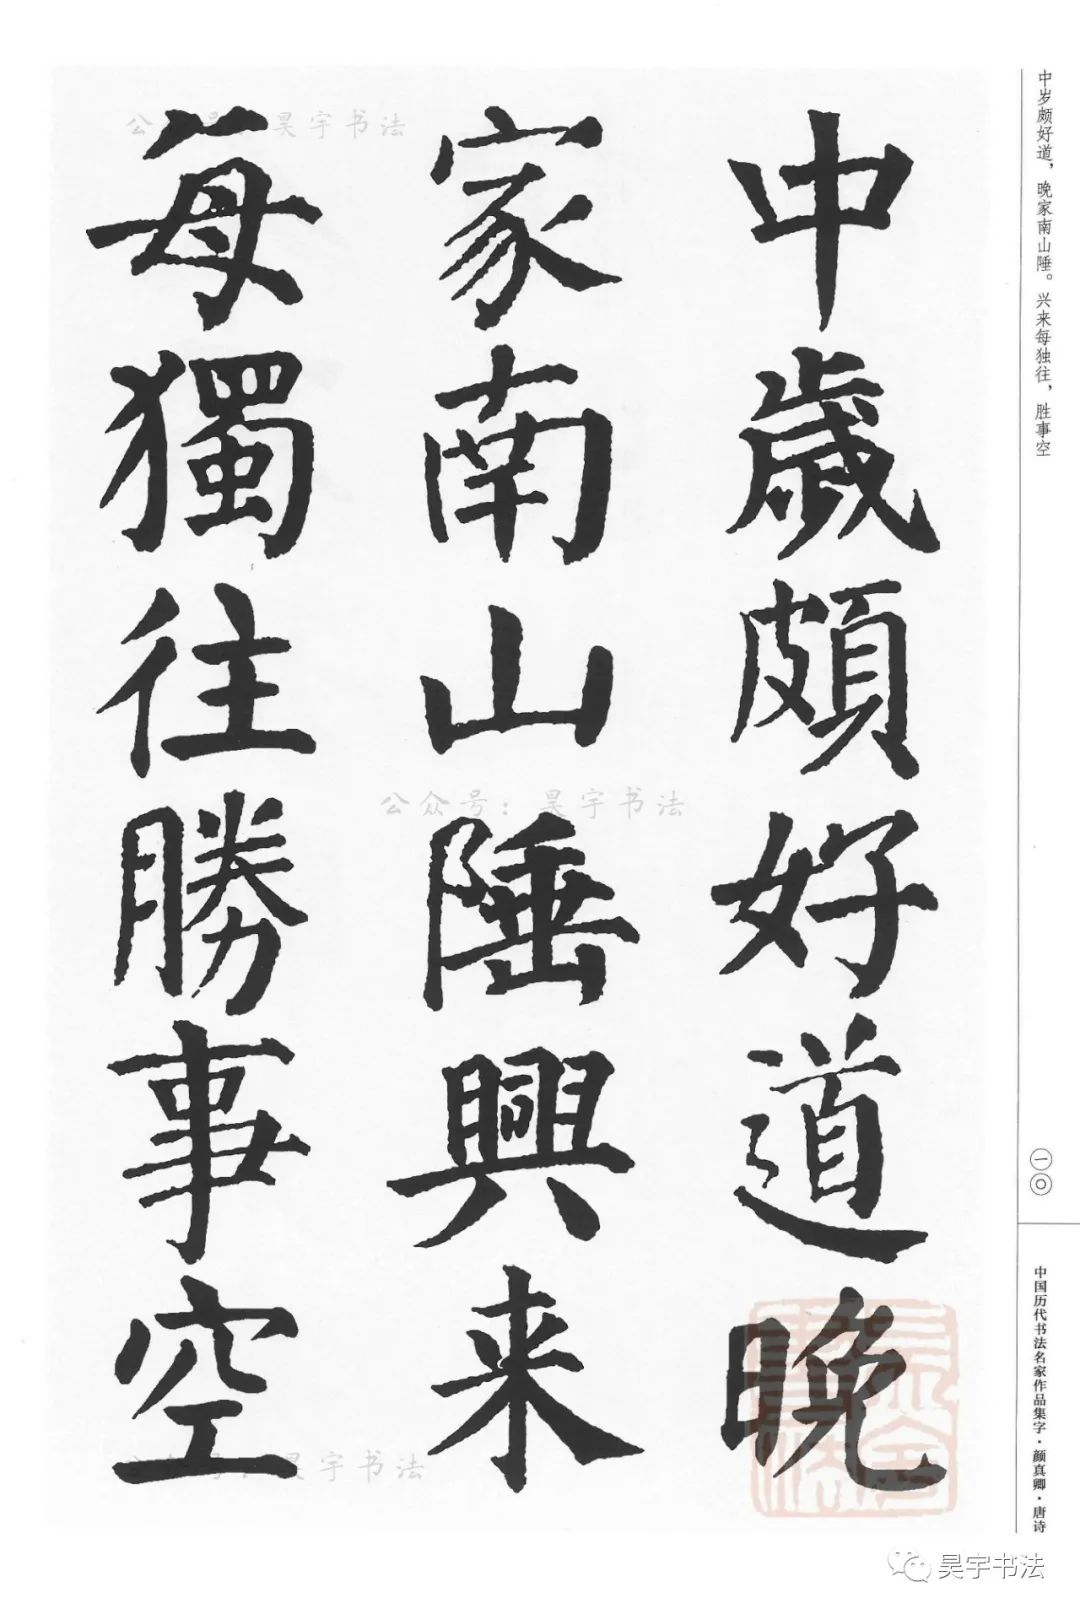 中岁颇好道，晚家南山陲。兴来每独往，胜事空
中歲頗好道晚
家南山陲興来
每獨往勝事空
一〇
中国历代书法名家作品集字·颜真卿·唐诗
公众号：昊宇书法
公众号：昊宇书法
公众号：昊宇书法
昊宇书法